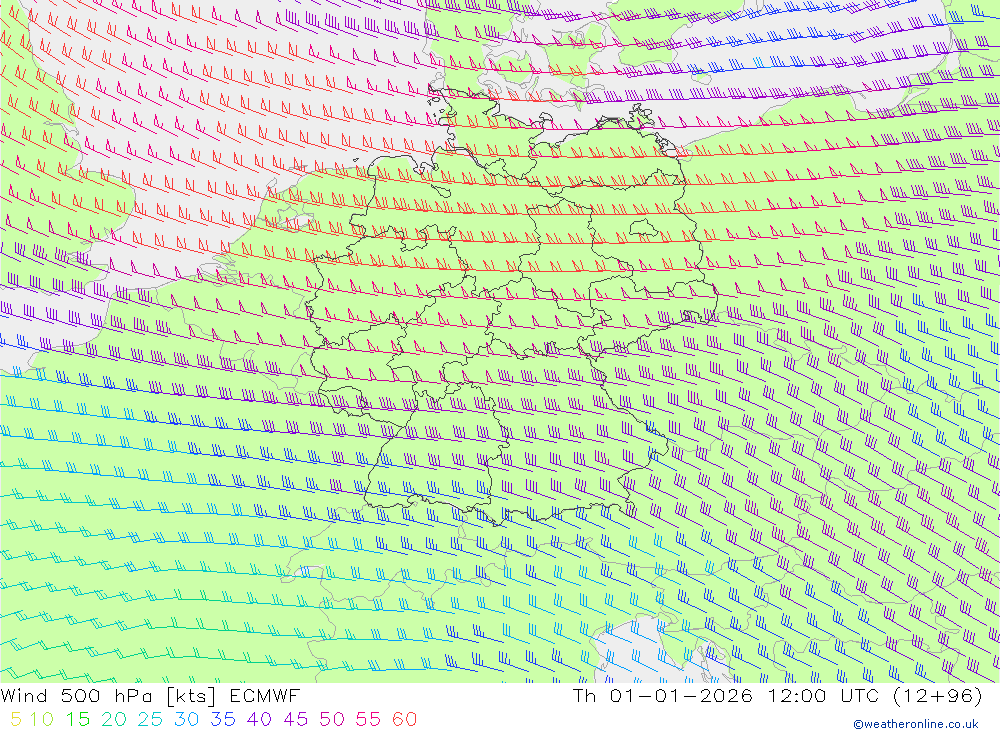 Wind 500 hPa [kts] ECMWF Th 01-01-2026 12:00 UTC (12+96)
5 10 15 20 25 30 35 40 45 50 55 60
©weatheronline.co.uk